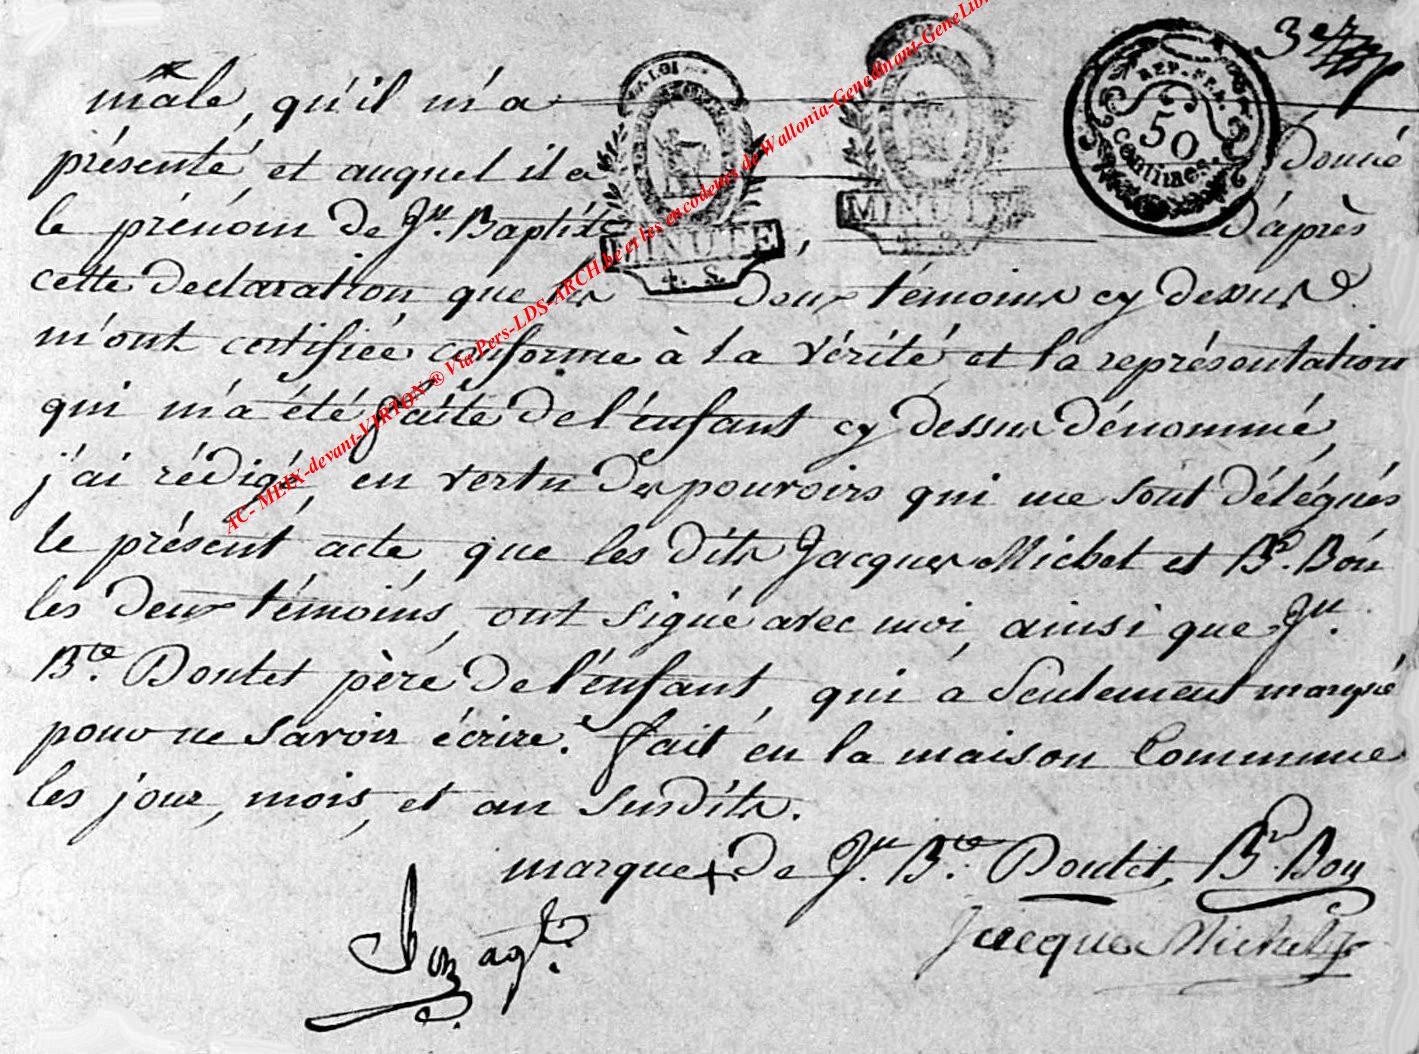 3er
LOI
REP. FRA.
50
centimes.
MINUTE
4. S.
MINUTE
4. S.
AC- MEIX-devant-VIRTON ® Via Pers-LDS-ARCH.be et les encodeurs de Wallonia-Genedinant-GeneLib
male, qu'il m'a
présenté, et auquel il a donné
le prénom de Jn. Baptiste, d'après
cette declaration que les deux témoins cy dessus
m'ont certifiée conforme à la vérité et la représentation
qui m'a été faite de l'enfant cy dessus dénommé,
j'ai rédigé, en vertu des pouvoirs qui me sont délégués
le présent acte, que les dits Jacques Michel et Bd. Bon
les deux témoins, ont signé avec moi, ainsi que Jn.
Bte. Doutet père de l'enfant, qui a seulement marqué
pour ne savoir écrire. fait en la maison Commune
les jour, mois, et an susdits.
marque + de Jn. Bte. Doutet, Bd. Bon
Jacques Michel
agt.